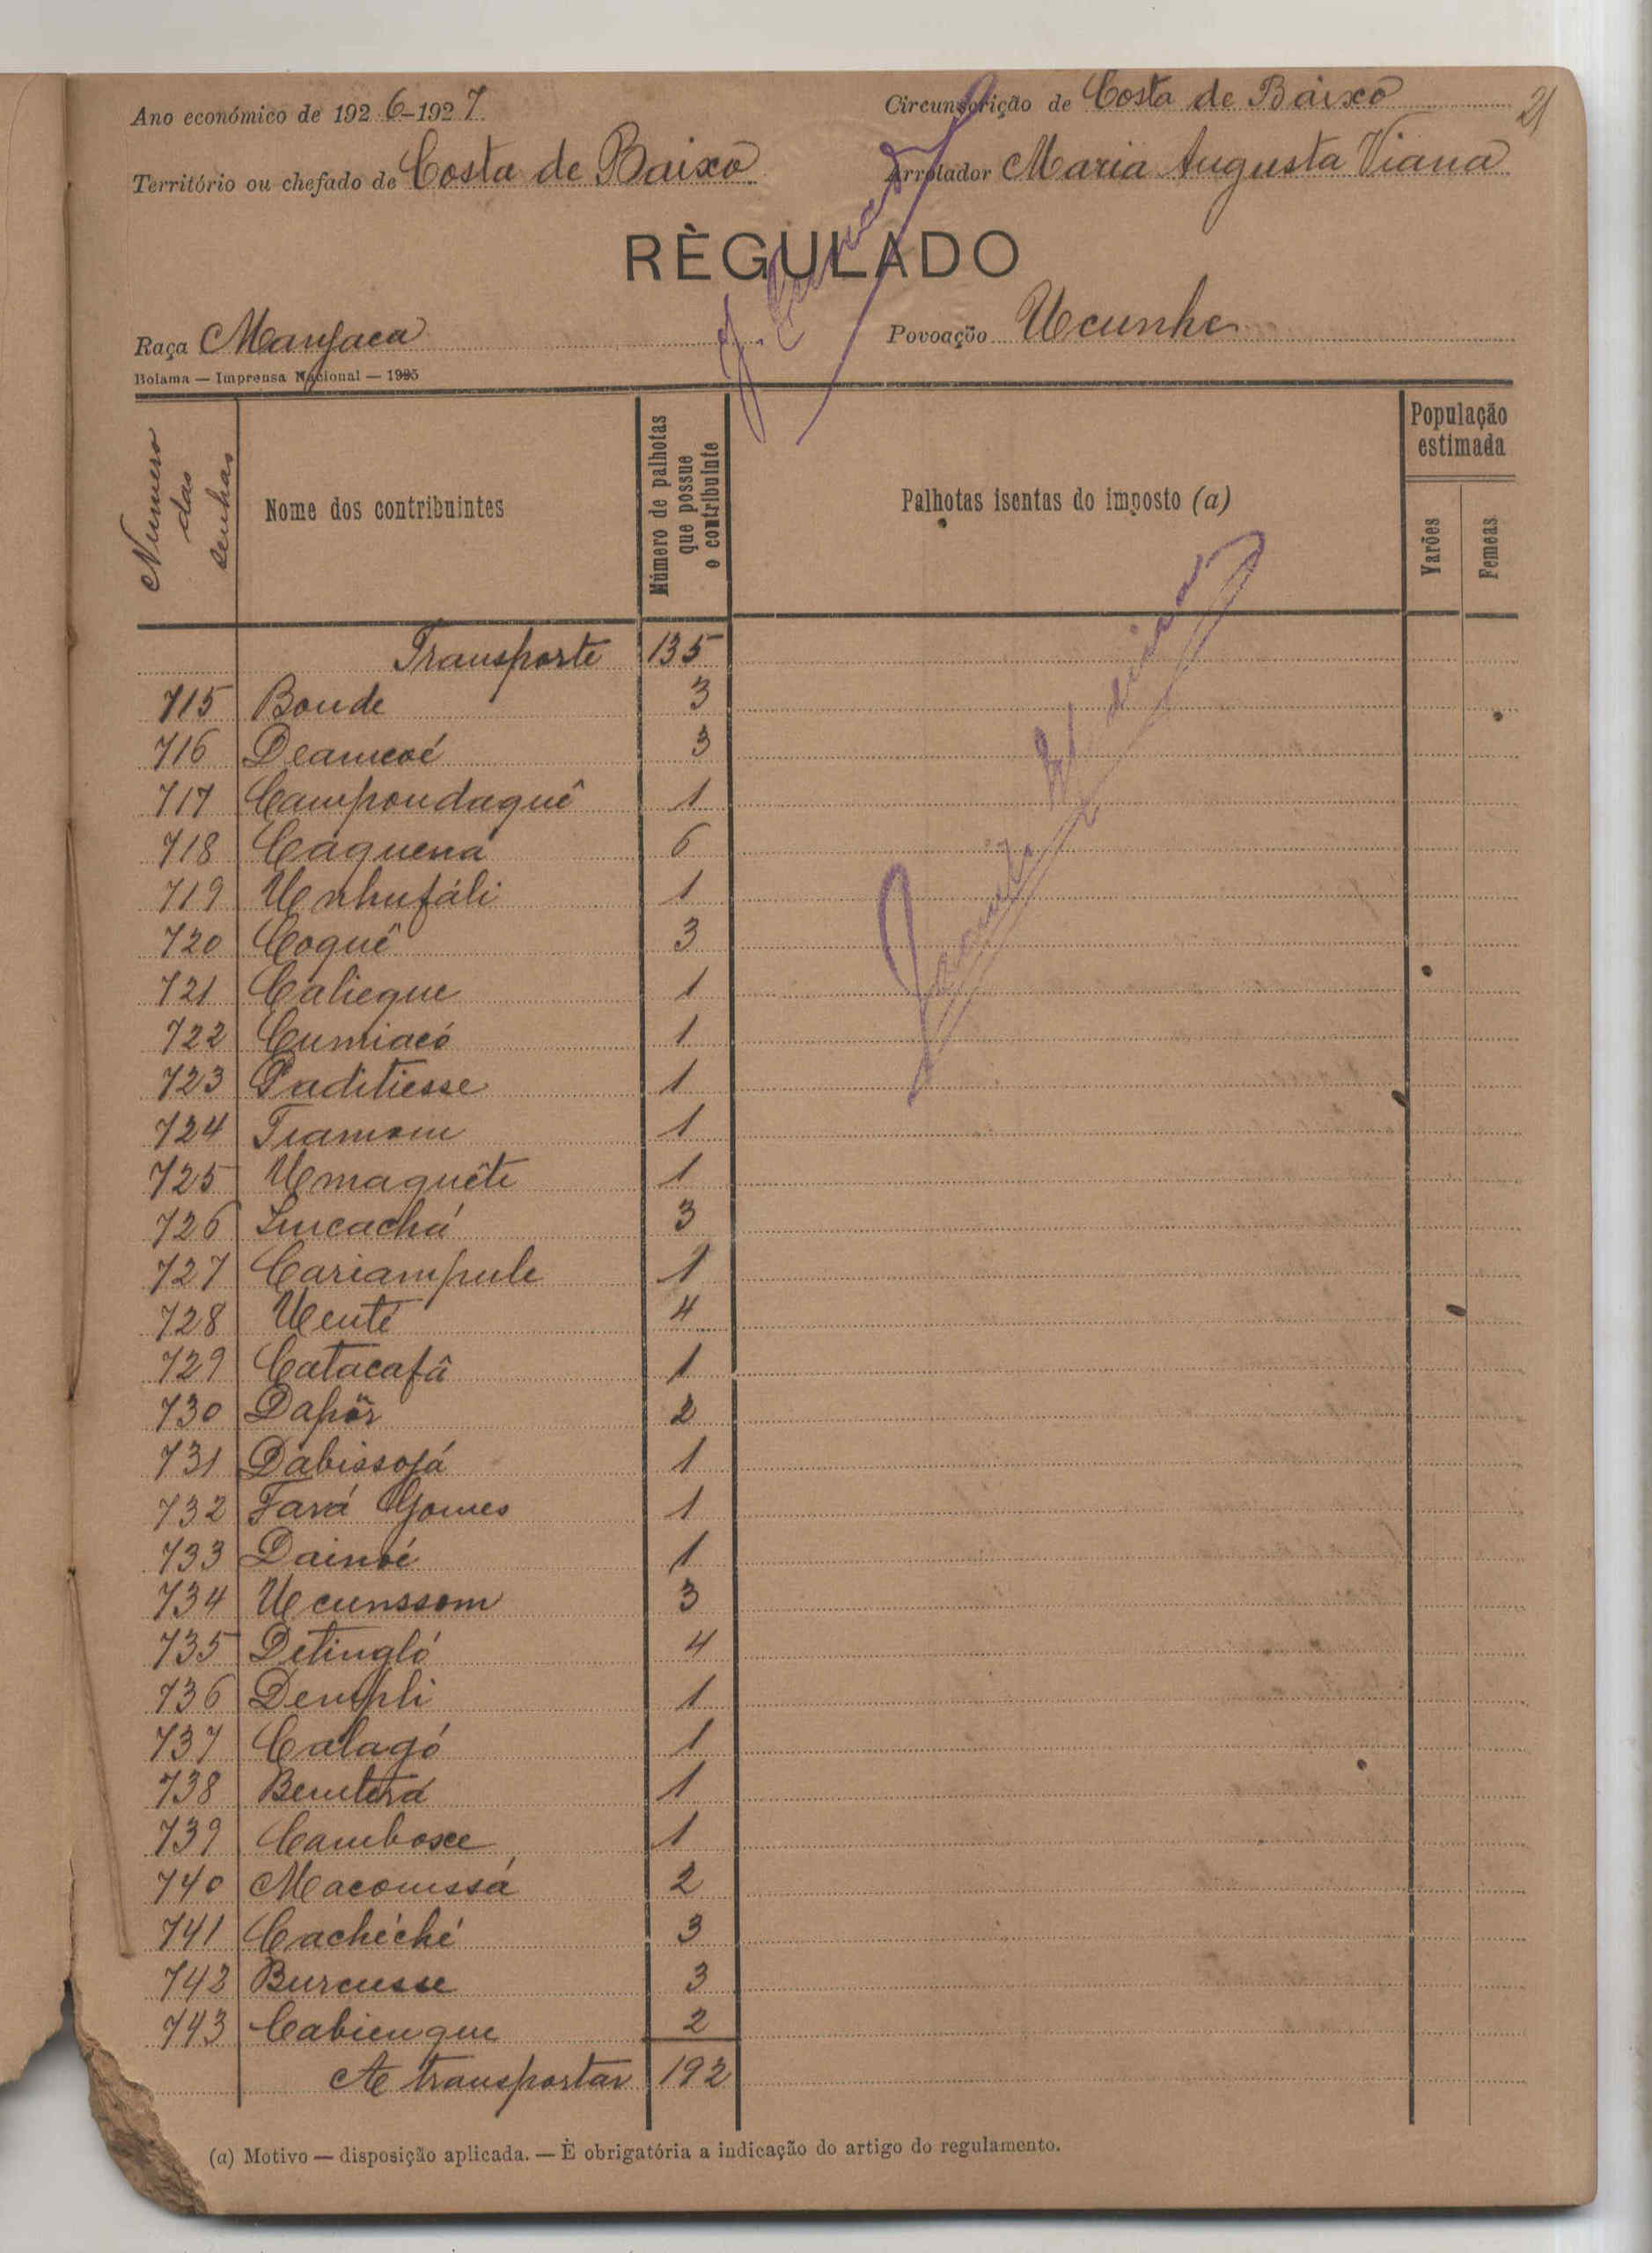 21
Ano económico de 1926-1927 Circunscrição de Costa de Baixo
Território ou chefado de Costa de Baixo Arrolador Maria Augusta Viana
RÈGULADO
Raça Manjaca Povoação Ucunhe
Bolama — Imprensa Nacional — 1925
Numero das senhas
Nome dos contribuintes
Número de palhotas que possue o contribuinte
Palhotas isentas do imposto (a)
População estimada
Varões
Femeas
Transporte 135
715 Bonde 3
716 Deamcoé 3
717 Campondaquê 1
718 Cáquena 6
719 Unhufáli 1
720 Coquê 3
721 Calieque 1
722 Cumiacó 1
723 Paditiesse 1
724 Tiamom 1
725 Umaquête 1
726 Incachá 3
727 Cariampule 1
728 Uenté 4
729 Catacafâ 1
730 Dapôr 2
731 Dabissojá 1
732 Fará Gomes 1
733 Dainoé 1
734 Ucunssom 3
735 Detingló 4
736 Dempli 1
737 Calagó 1
738 Bemterá 1
739 Cambosse 1
740 Macomssá 2
741 Cachéché 3
742 Burcusse 3
743 Cabienque 2
A transportar 192
(a) Motivo — disposição aplicada. — È obrigatória a indicação do artigo do regulamento.